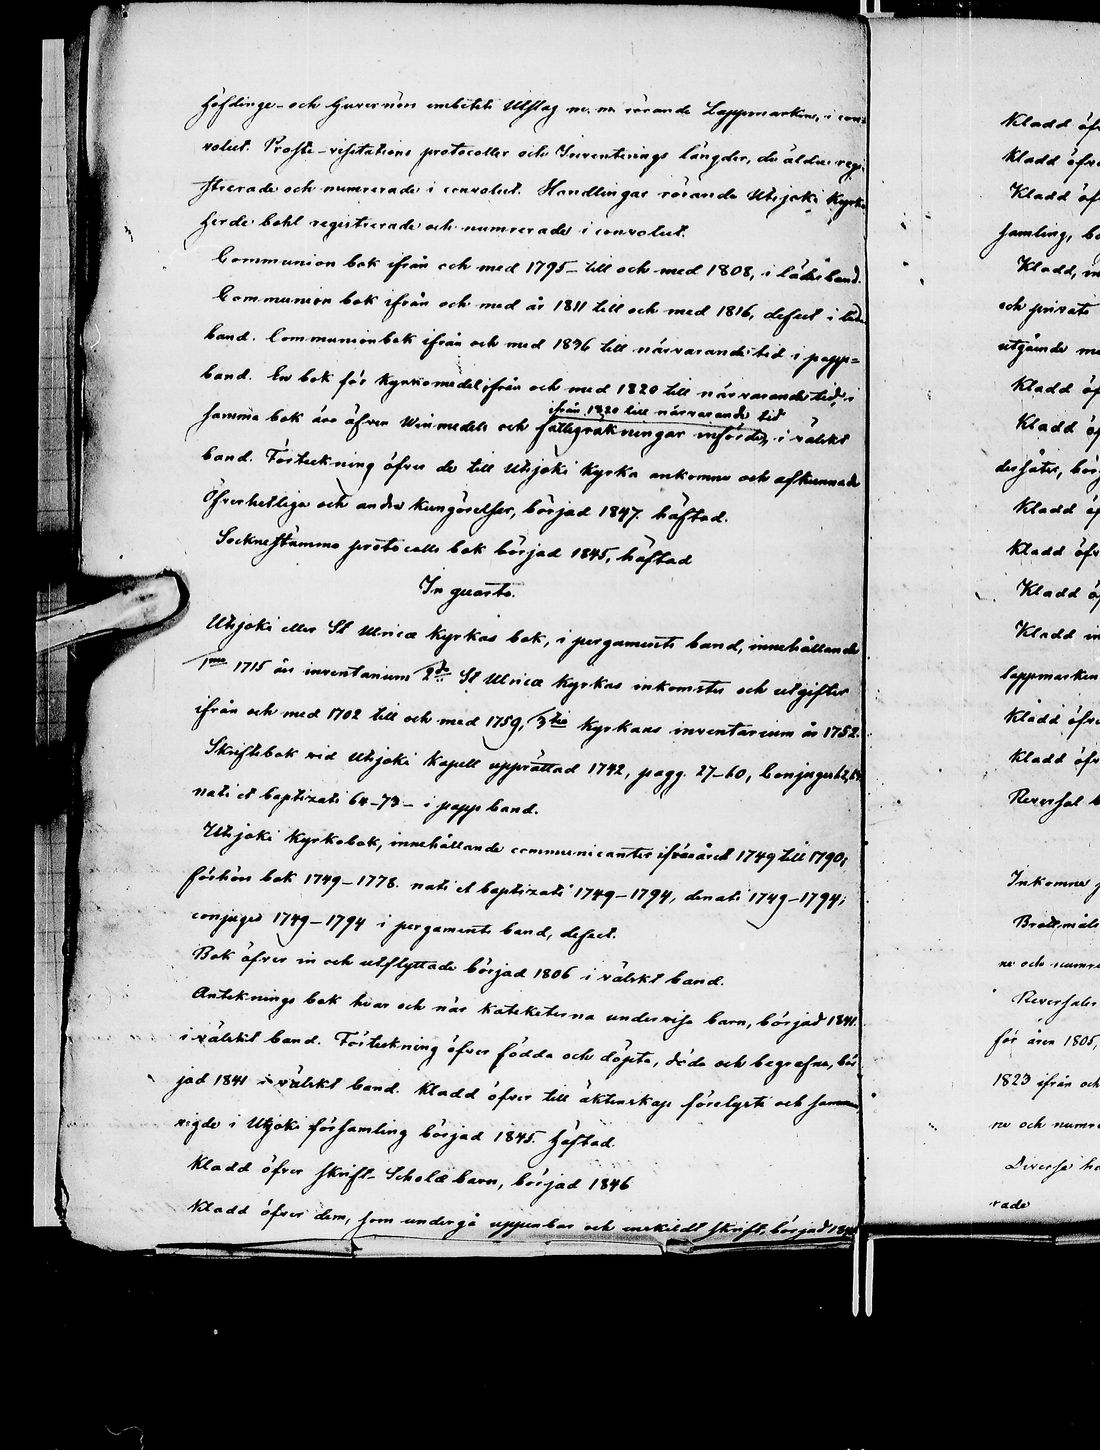 höfdinge- och Guvernörs embetets Utslag m. m. rörande Lappmarken, i con-
volut. Prosti-visitations protocoller och Inventerings längder, de äldre regi-
strerade och numrerade i convolut. Handlingar rörande Utsjoki Kyrko
herde bohl registrerade och numrerade i convolut.
Communion bok ifrån och med 1795 - till och med 1808, i läderband.
Communion bok ifrån och med år 1811 till och med 1816, defect i läder
band. Communionbok ifrån och med 1836 till närvarande tid i papp=
band. En bok för Kyrkomedel ifrån och med 1820 till närvarande tid, i
ifrån 1820 till närvarande tid
samma bok äro öfven Winmedels och fattigräkningar införde, i välskt
band. Förteckning öfver de till Utsjoki Kyrka ankomne och afkunnade
Öfverhetliga och andra kungörelser, börjad 1847. häftad.
Socknestämmo protocolls bok börjad 1845, häftad
In quarto.
Utsjoki eller St Ulricæ Kyrkas bok, i pergaments band, innehållande
1mo 1715 års inventarium 2do St Ulricæ Kyrkas inkomster och utgifter
ifrån och med 1702 till och med 1759, 3tio Kyrkans inventarium år 1752.
Skriftebok vid Utsjoki Kapell upprättad 1742, pagg. 27-60, Conjuges 62,
nati et baptizati 64-73 - i papp band.
Utsjoki Kyrkobok, innehållande communicanter ifrån året 1749 till 1790;
förhörs bok 1749-1778. nati et baptizati 1749-1794, denati 1749-1794;
conjuges 1749-1794 i pergaments band, defect.
Bok öfver in och utflyttade börjad 1806 i välskt band.
Antecknings bok huar och när Kateketerna undervisa barn, börjad 1841.
i välskt band. Förteckning öfver födda och döpta, döda och begrafna, bör
jad 1841 i välskt band. Kladd öfver till äktenskap förelyste och samman
vigde i Utsjoki församling börjad 1845. häftad.
Kladd öfver skrift-Scholæ barn, börjad 1846
Kladd öfver dem, som undergå uppenbar och enskildt skrift, börjad
Kladd
Kladd
Kladd
samling,
Kladd,
och privata
utgående
Kladd
Kladd
Kladd
Kladd
Kladd
Kladd
lappmarken
Kladd
Kladd
Reversal
Inkomne
Brottmåls
ne och
Reversaler
för åren 1805,
1823 ifrån och
ne och
Diverse
rade